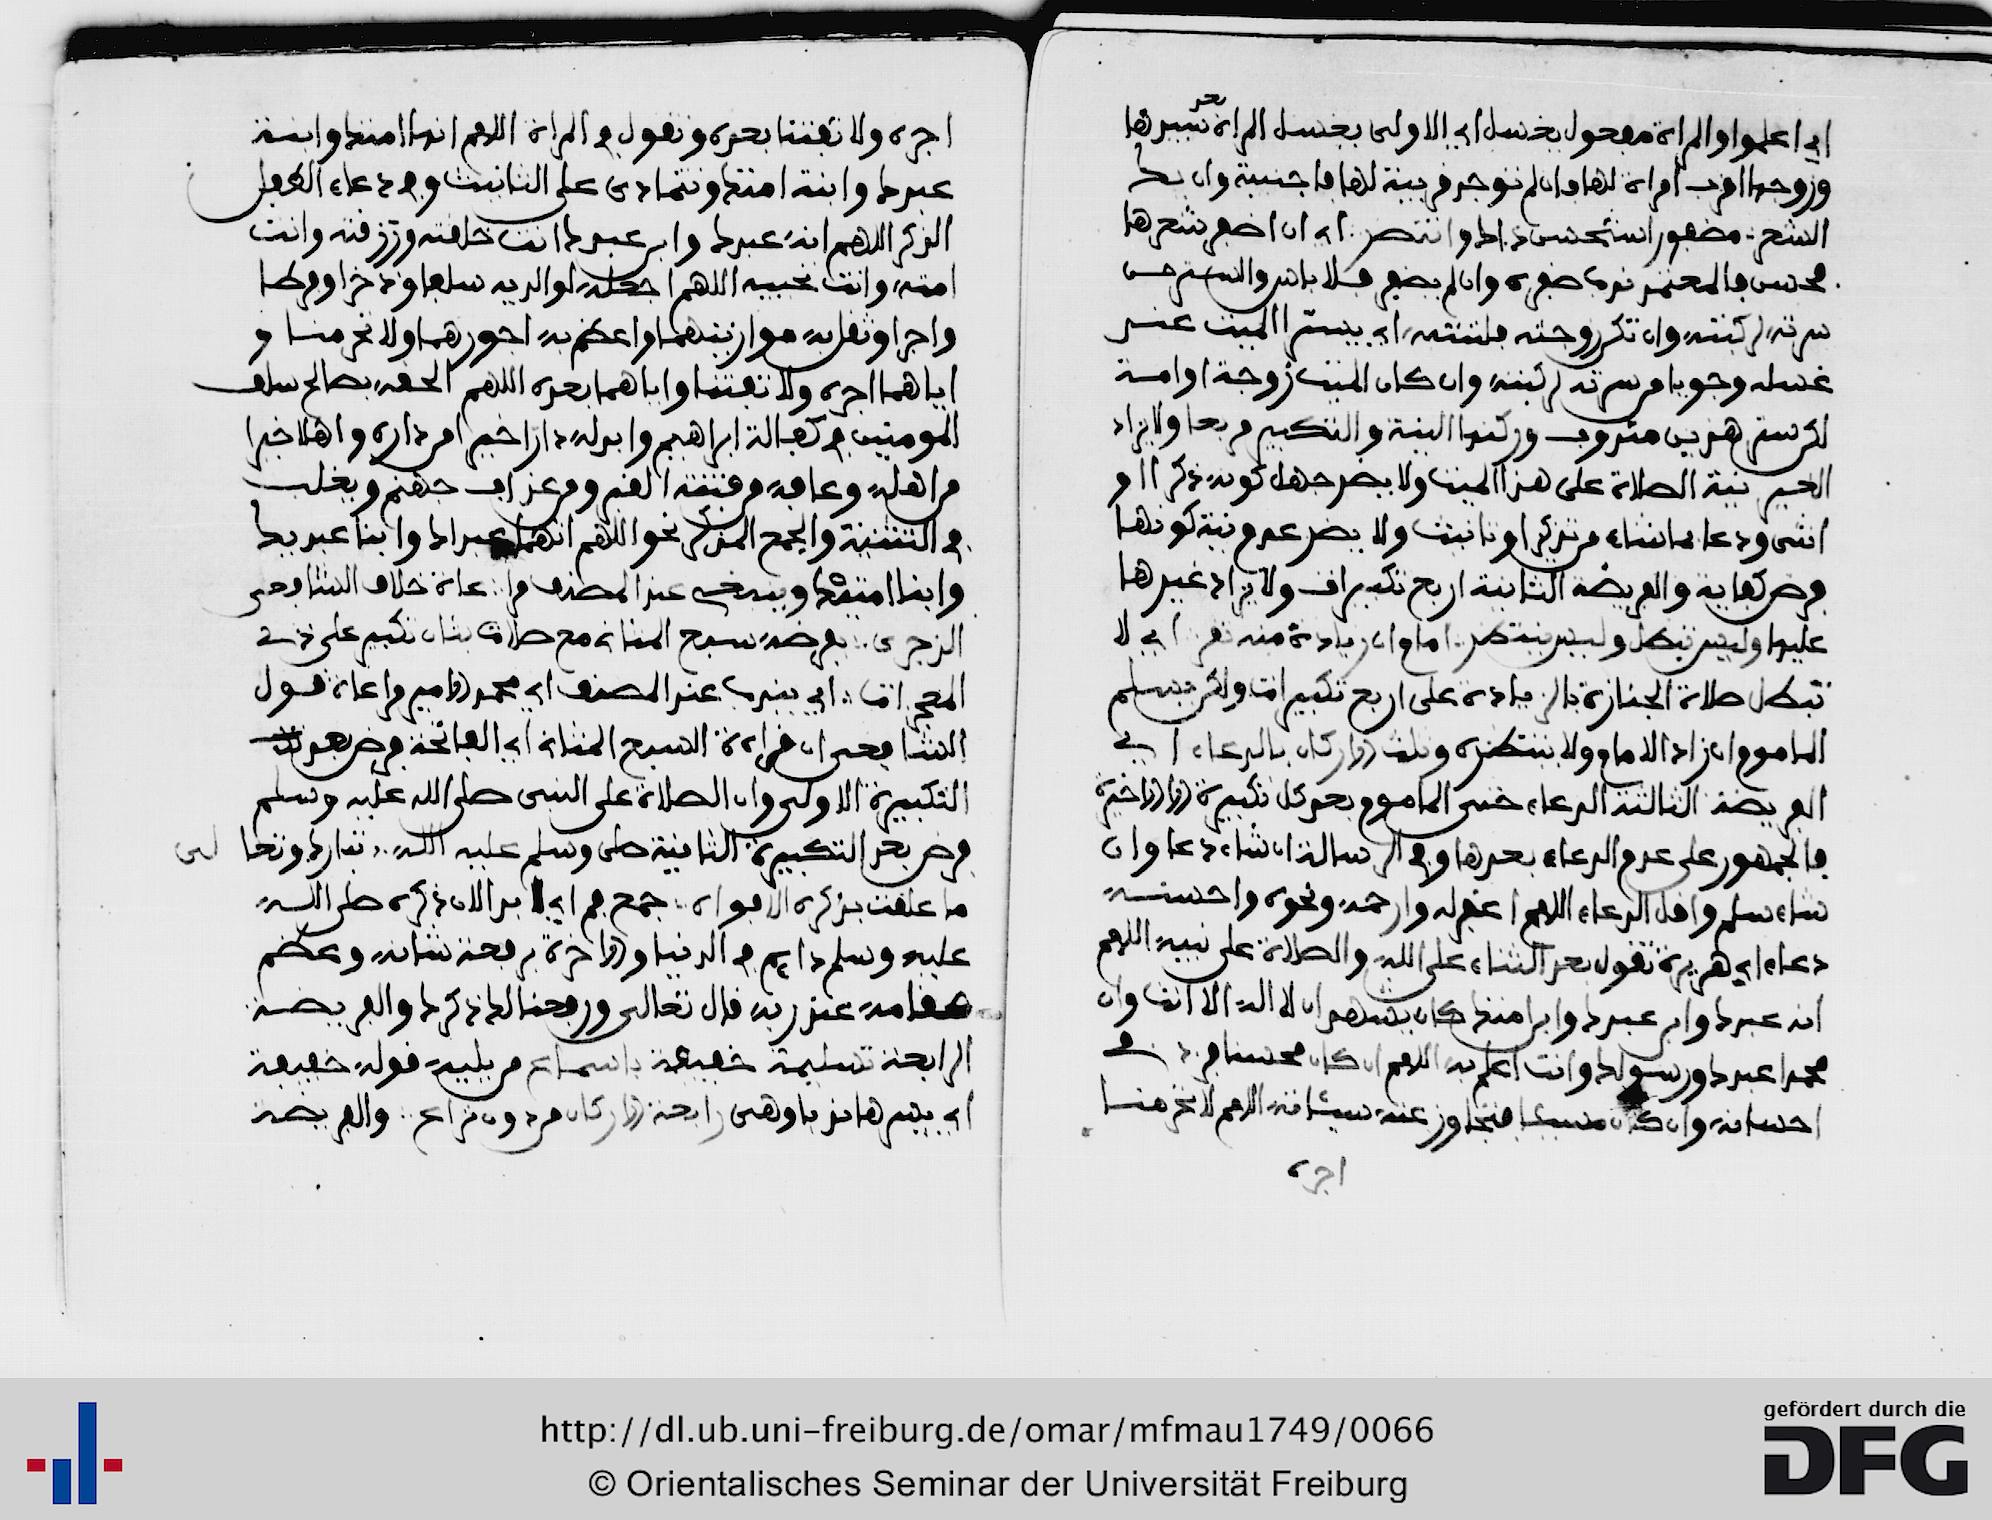 اي اعلموا والمراة مفعول يغسل اي الاولى بغسل المراة بعد سيدها
وزوجها اقرب امراة لها وان لم توجد قريبة لها فاجنبية وان يك
الشعر مضفورا استحسن ذاك وانتصر اي ان اضفر شعرها
محسن فالمعتمد ندب ضفره وان لم يضفر فلا باس والستر من
سرته لركبته وان تكن زوجته فلتنته اي يستر الميت عند
غسله وجوبا من سرته لركبته وان كان الميت زوجة او امة
لكن ستر هذين مندوب وركنها النية والتكبير اربعا ولا يزاد
الخير نية الصلاة على هذا الميت ولا يضر جهل كونه ذكرا او
انثى ودعا بما شاء من تذكير او تانيث ولا يضر عدم نية كونها
فرض كفاية والفريضة الثانية اربع تكبيرات ولا يزاد غيرها
عليها وليس تبطل وليس ينتظر امام ان زيادة منه اي لا
تبطل صلاة الجنازة بالزيادة على اربع تكبيرات ولكن يسلم
الماموم ان زاد الامام ولا ينتظره وثلث الاركان بالدعاء اي
الفريضة الثالثة الدعاء حتى الماموم بعد كل تكبيرة الا الاخيرة
فالجمهور على عدم الدعاء بعدها وفي الرسالة ان شاء دعا وان
شاء سلم واقل الدعاء اللهم اغفر له وارحمه ونحوه واحسنه
دعاء ابي هريرة تقول بعد الثناء على الله والصلاة على نبيه اللهم
انه عبدك وابن عبدك وابن امتك كان يشهد ان لا اله الا انت وان
محمدا عبدك ورسولك وانت اعلم به اللهم ان كان محسنا فزد في
احسانه وان كان مسيئا فتجاوز عنه سيئاته اللهم لا تحرمنا
اجره
اجره ولا تفتنا بعده وتقول في المراة اللهم انها امتك وابنة
عبدك وابنة امتك وتتمادى على التانيث وفي دعاء الطفل
الذكر اللهم انه عبدك وابن عبدك انت خلقته ورزقته وانت
امته وانت تحييه اللهم اجعله لوالديه سلفا وذخرا وفرطا
واجرا وثقل به موازينهما واعظم به اجورهما ولا تحرمنا و
اياهما اجره ولا تفتنا واياهما بعده اللهم الحقه بصالح سلف
المومنين في كفالة ابراهيم وابدله دارا خيرا من داره واهلا خيرا
من اهله وعافه من فتنة القبر ومن عذاب جهنم ويغلب
في التثنية والجمع المذكر نحو اللهم انهما عبداك وابنا عبديك
وابنا امتيك وينبغي عند المصنف مراعاة خلاف الشافعي
بفرضه سبع المثاني مع صلاة بثان تكبير على ذي
المعجزات اي يندب عند المصنف اي محمد الامير مراعاة قول
الشافعي ان قراءة السبع المثاني اي الفاتحة فرض بعد
التكبيرة الاولى وان الصلاة على النبي صلى الله عليه وسلم
فرض بعد التكبيرة الثانية صلى وسلم عليه الله تبارك وتعالى
ما علقت بذكره الافواه جمع فم اي ابد الان ذكره صلى الله
عليه وسلم دايم في الدنيا والاخرة برفعة شانه وعظم
مقامه عند ربه قال تعالى ورفعنا لك ذكرك والفريضة
الرابعة تسليمة خفيفة باسماع من يليه قوله خفيفة
اي يسرها ندبا وهي رابعة الاركان من دون نزاع والفريضة
http://dl.ub.uni-freiburg.de/omar/mfmau1749/0066
© Orientalisches Seminar der Universität Freiburg
gefördert durch die
DFG